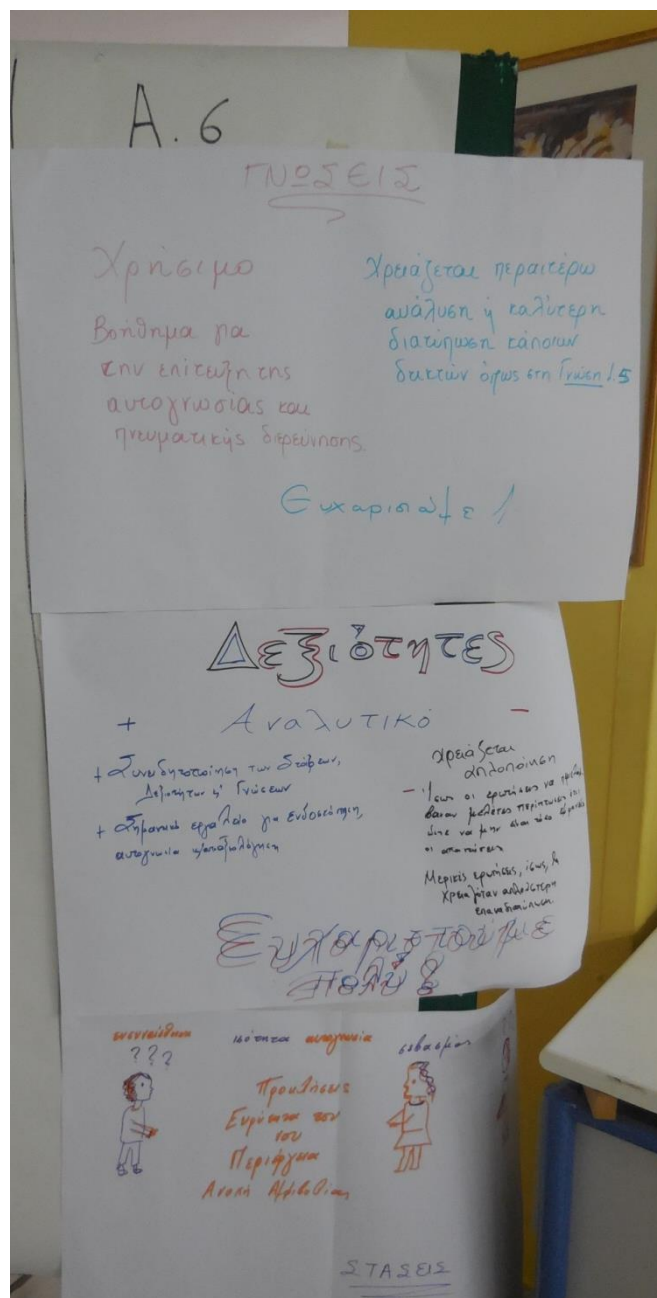 Α. 6
ΓΝΩΣΕΙΣ
Χρήσιμο
Βοήθημα για
την επίτευξη της
αυτογνωσίας και
πνευματικής διερεύνησης.
Χρειάζεται περαιτέρω
ανάλυση ή καλύτερη
διατύπωση κάποιων
δεικτών όπως στη Γνώση 1.5
Ευχαριστούμε!
Δεξιότητες
+ Αναλυτικό −
+ Συνειδητοποίηση των Στάσεων,
Δεξιοτήτων κ' Γνώσεων
+ Σημαντικό εργαλείο για ενδοσκόπηση,
αυτογνωσία
χρειάζεται
απλοποίηση
− Ίσως οι ερωτήσεις να
μελέτες περίπτωσης
ώστε να μην είναι τόσο
οι απαντήσεις
Μερικές ερωτήσεις, ίσως, θα
χρειαζόταν απλούστερη
επαναδιατύπωση.
Ευχαριστούμε
πολύ!
ενσυναίσθηση ισότητα αυτογνωσία σεβασμός
???
Προκλήσεις
Ευρύτητα του
νου
Περιέργεια
Ανοχή Αμφιβολίας
ΣΤΑΣΕΙΣ